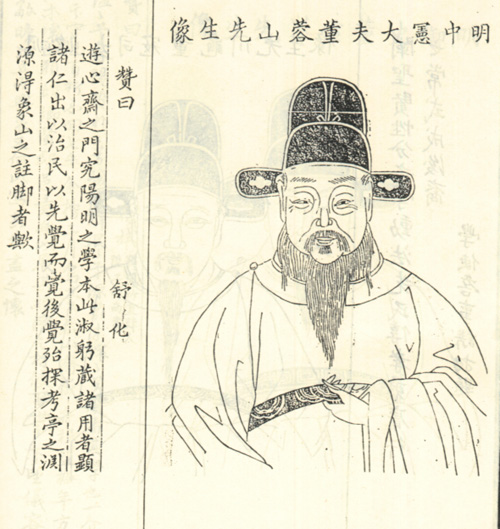 明中憲大夫董蓉山先生像
贊曰 舒化
遊心齋之門究陽明之學本此淑躬藏諸用者顯
諸仁出以治民以先覺而覺後覺殆探考亭之淵
源得象山之註脚者歟